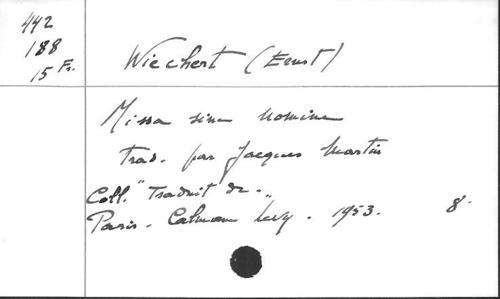 442
188
15 Fr.
Wiechert (Ernst)
Missa sine nomine
Trad. par Jacques Martin
Coll. "Traduit de."
Paris. Calmann Levy. 1953. 8.